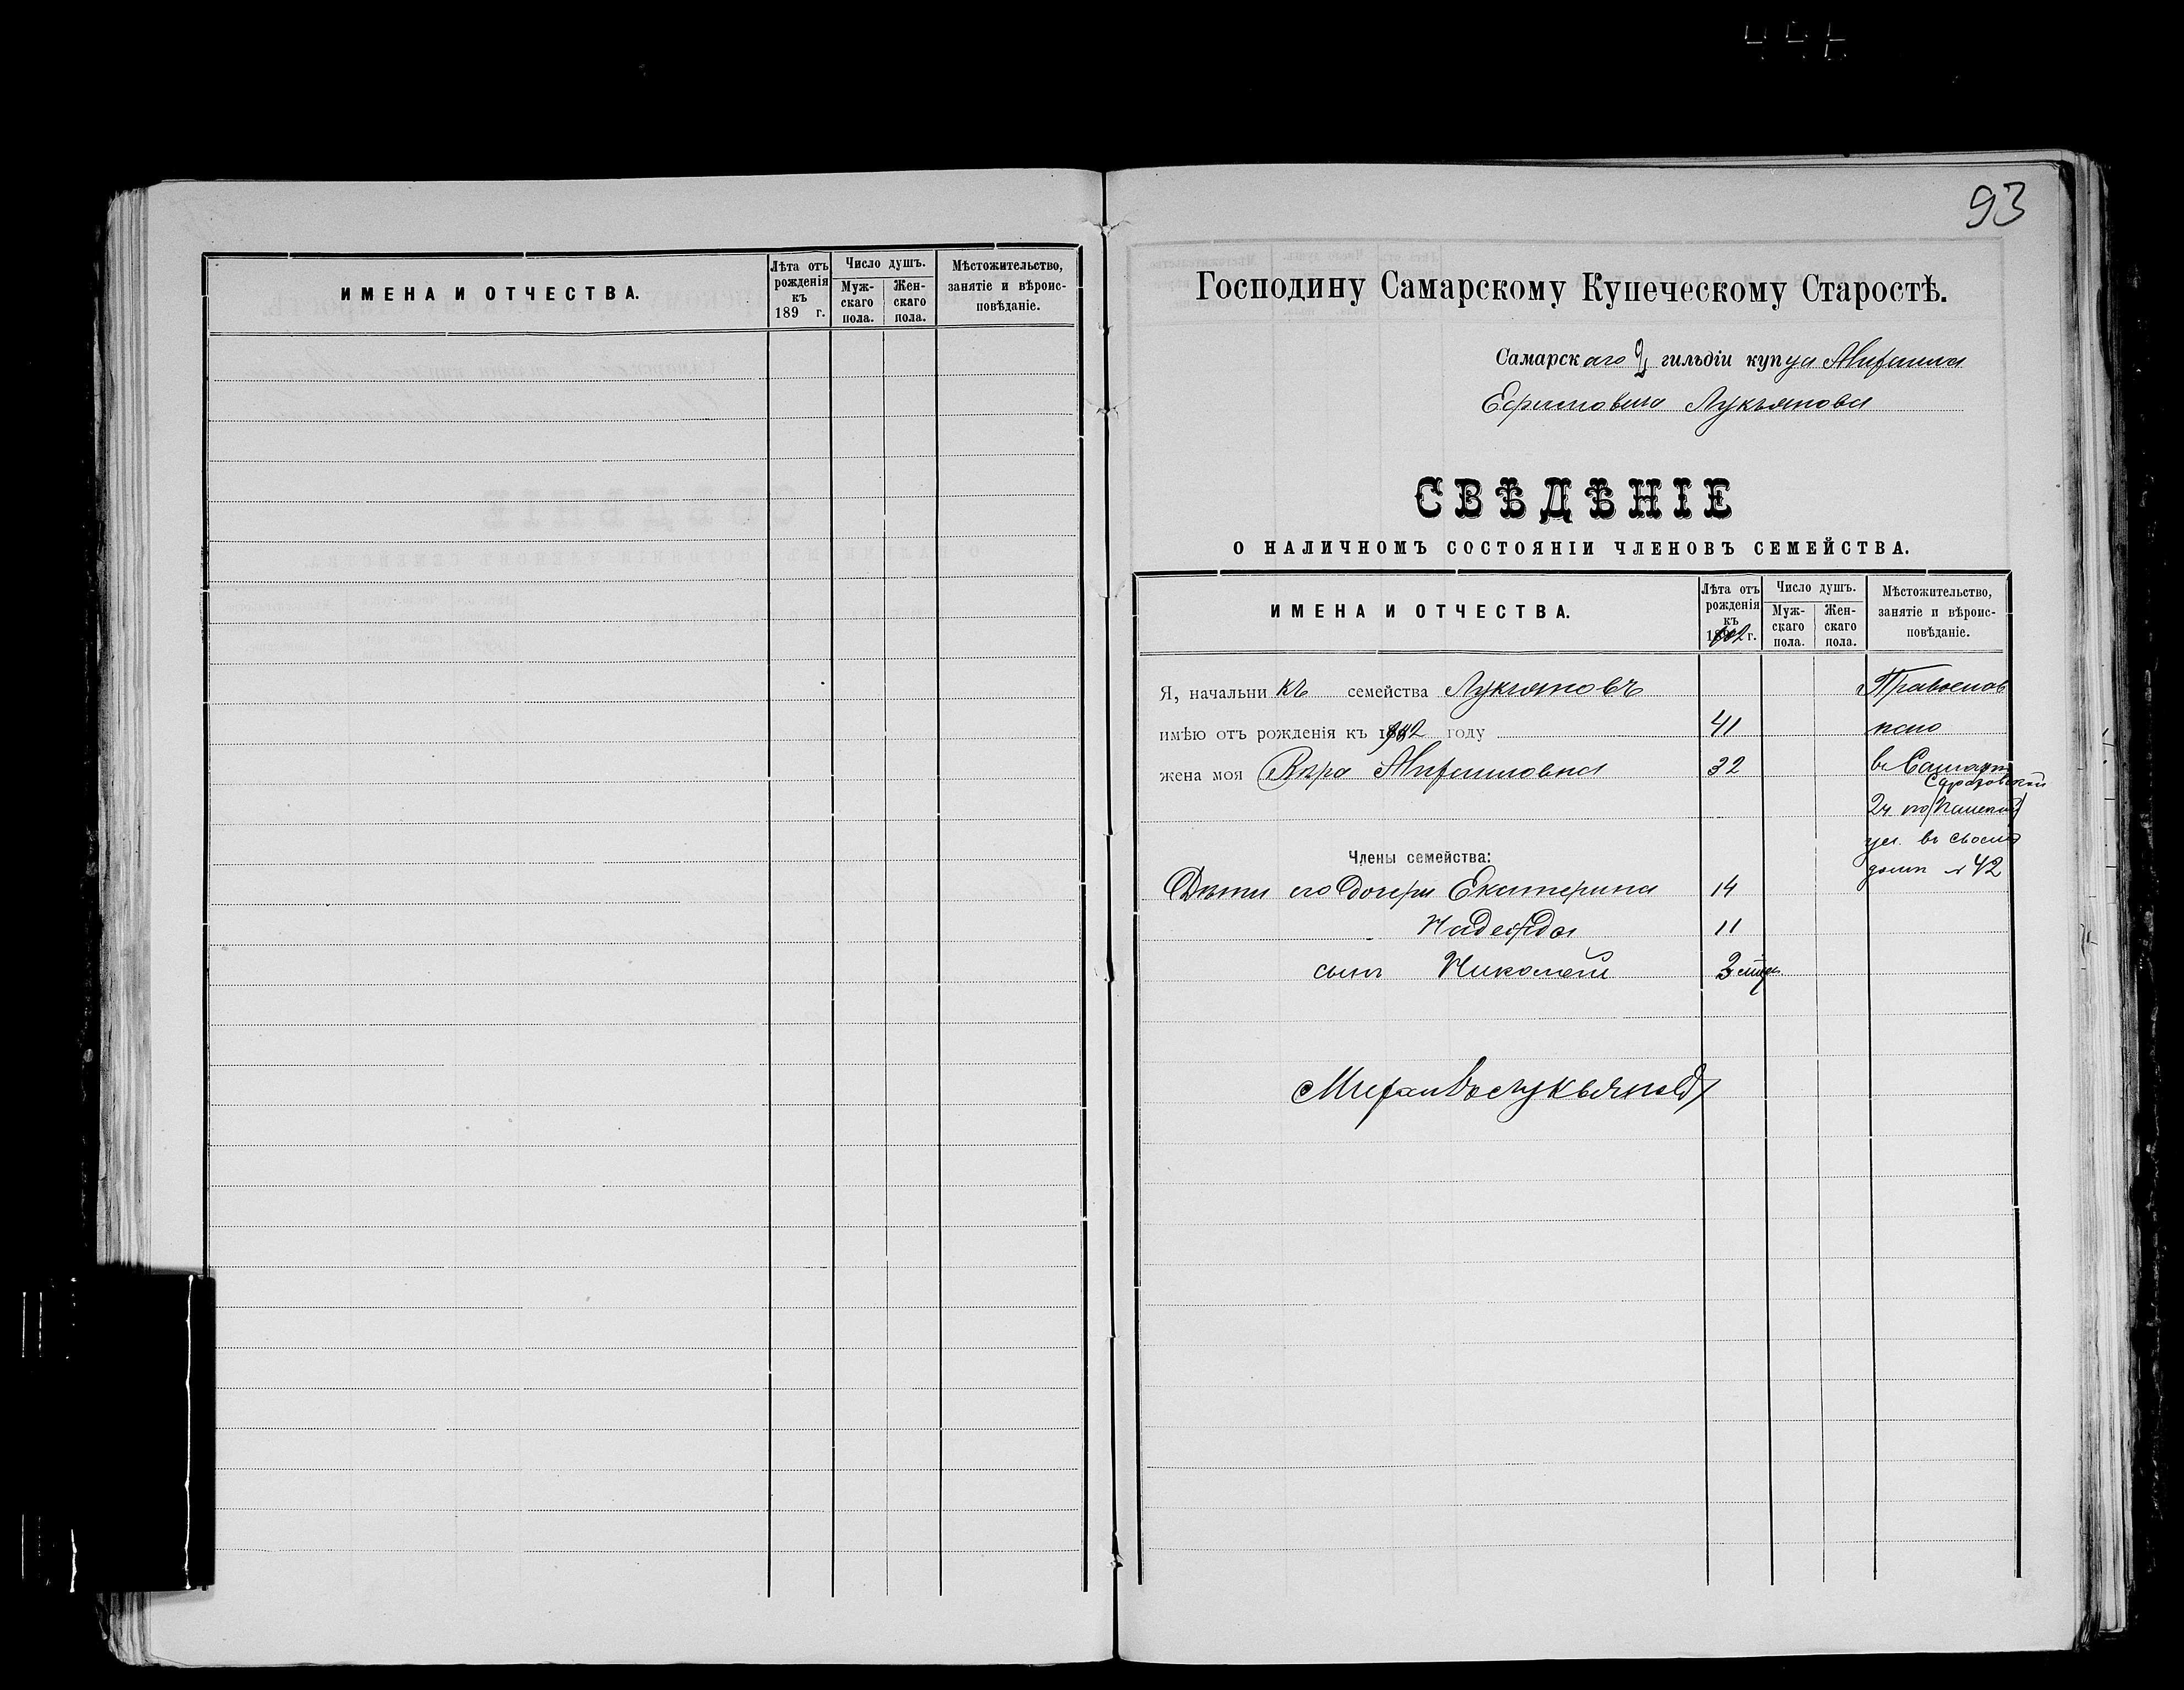 ИМЕНА И ОТЧЕСТВА.
Лѣта отъ рожденія къ 189 г.
Число душъ.
Мужскаго пола.
Женскаго пола.
Мѣстожительство, занятіе и вѣроисповѣданіе.
93
Господину Самарскому Купеческому Старостѣ.
Самарскаго 2й гильдіи купца Михаила
Ефимовича Лукьянова
СВѢДѢНІЕ
О НАЛИЧНОМЪ СОСТОЯНІИ ЧЛЕНОВЪ СЕМЕЙСТВА.
ИМЕНА И ОТЧЕСТВА.
Лѣта отъ рожденія къ 1902 г.
Число душъ.
Мужскаго пола.
Женскаго пола.
Мѣстожительство, занятіе и вѣроисповѣданіе.
Я, начальникъ семейства Лукьяновъ Православ
имѣю отъ рожденія къ 1902 году 41
жена моя Вѣра Михаиловна 32 въ Самарѣ
2ч по
ул. въ своемъ
Члены семейства: домѣ № 42
Дѣти его Дочери Екатерина 14
Надежда 11
сынъ Николай
Михаилъ Лукьяновъ